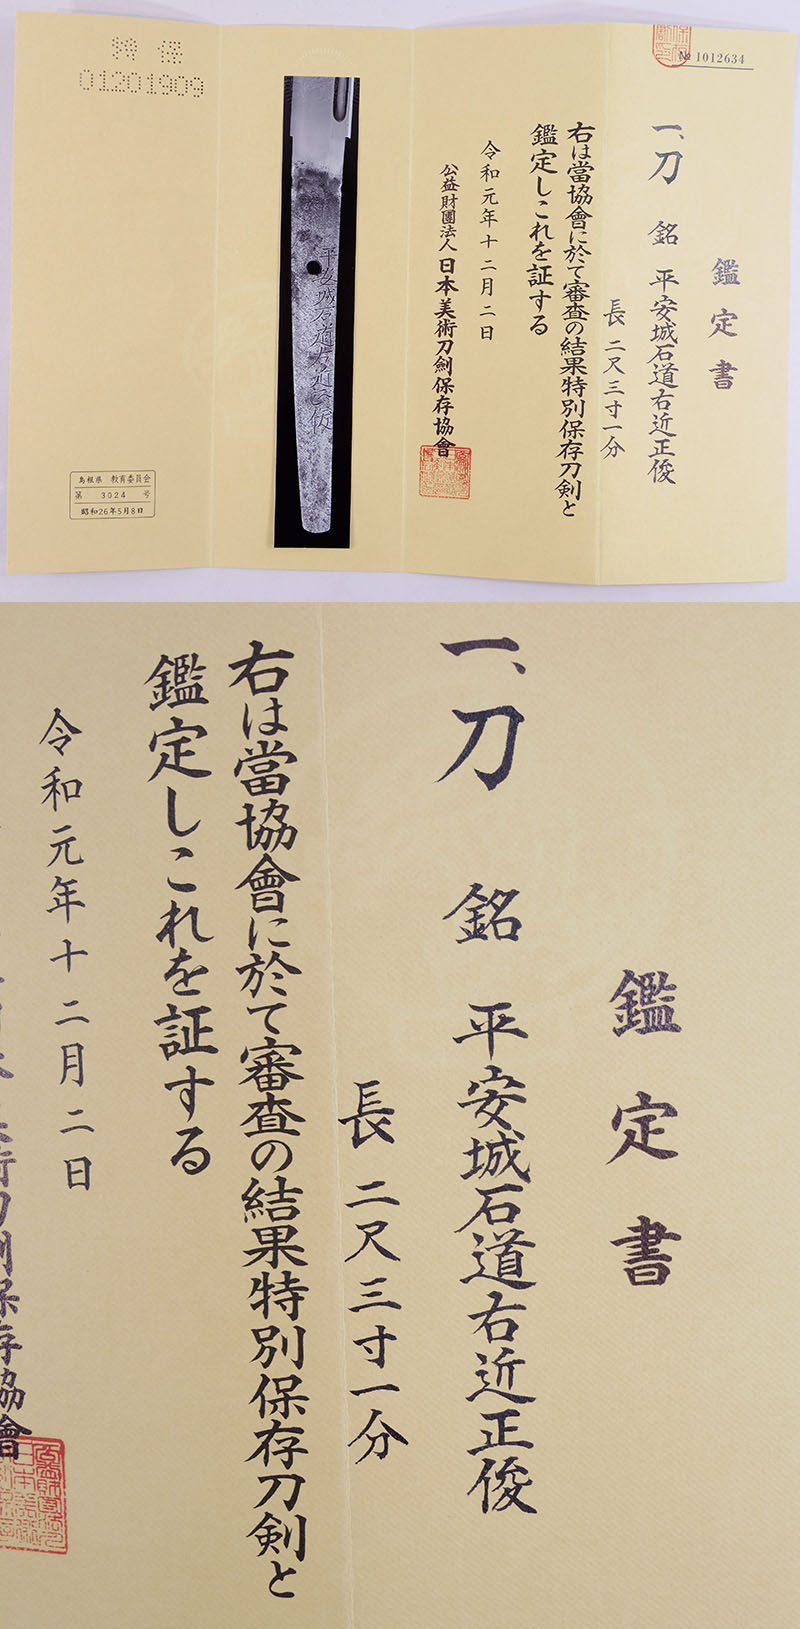 № 1012634
鑑定書
一、刀 銘 平安城石道右近正俊
長 二尺三寸一分
右は當協會に於て審査の結果特別保存刀剣と
鑑定しこれを証する
令和元年十二月二日
公益財團法人 日本美術刀劍保存協會
平安城石道右近正俊
特保
01201909
島根県 教育委員会
第 3024 号
昭和26年5月8日
鑑定書
一、刀 銘 平安城石道右近正俊
長 二尺三寸一分
右は當協會に於て審査の結果特別保存刀剣と
鑑定しこれを証する
令和元年十二月二日
術刀劍保存協會